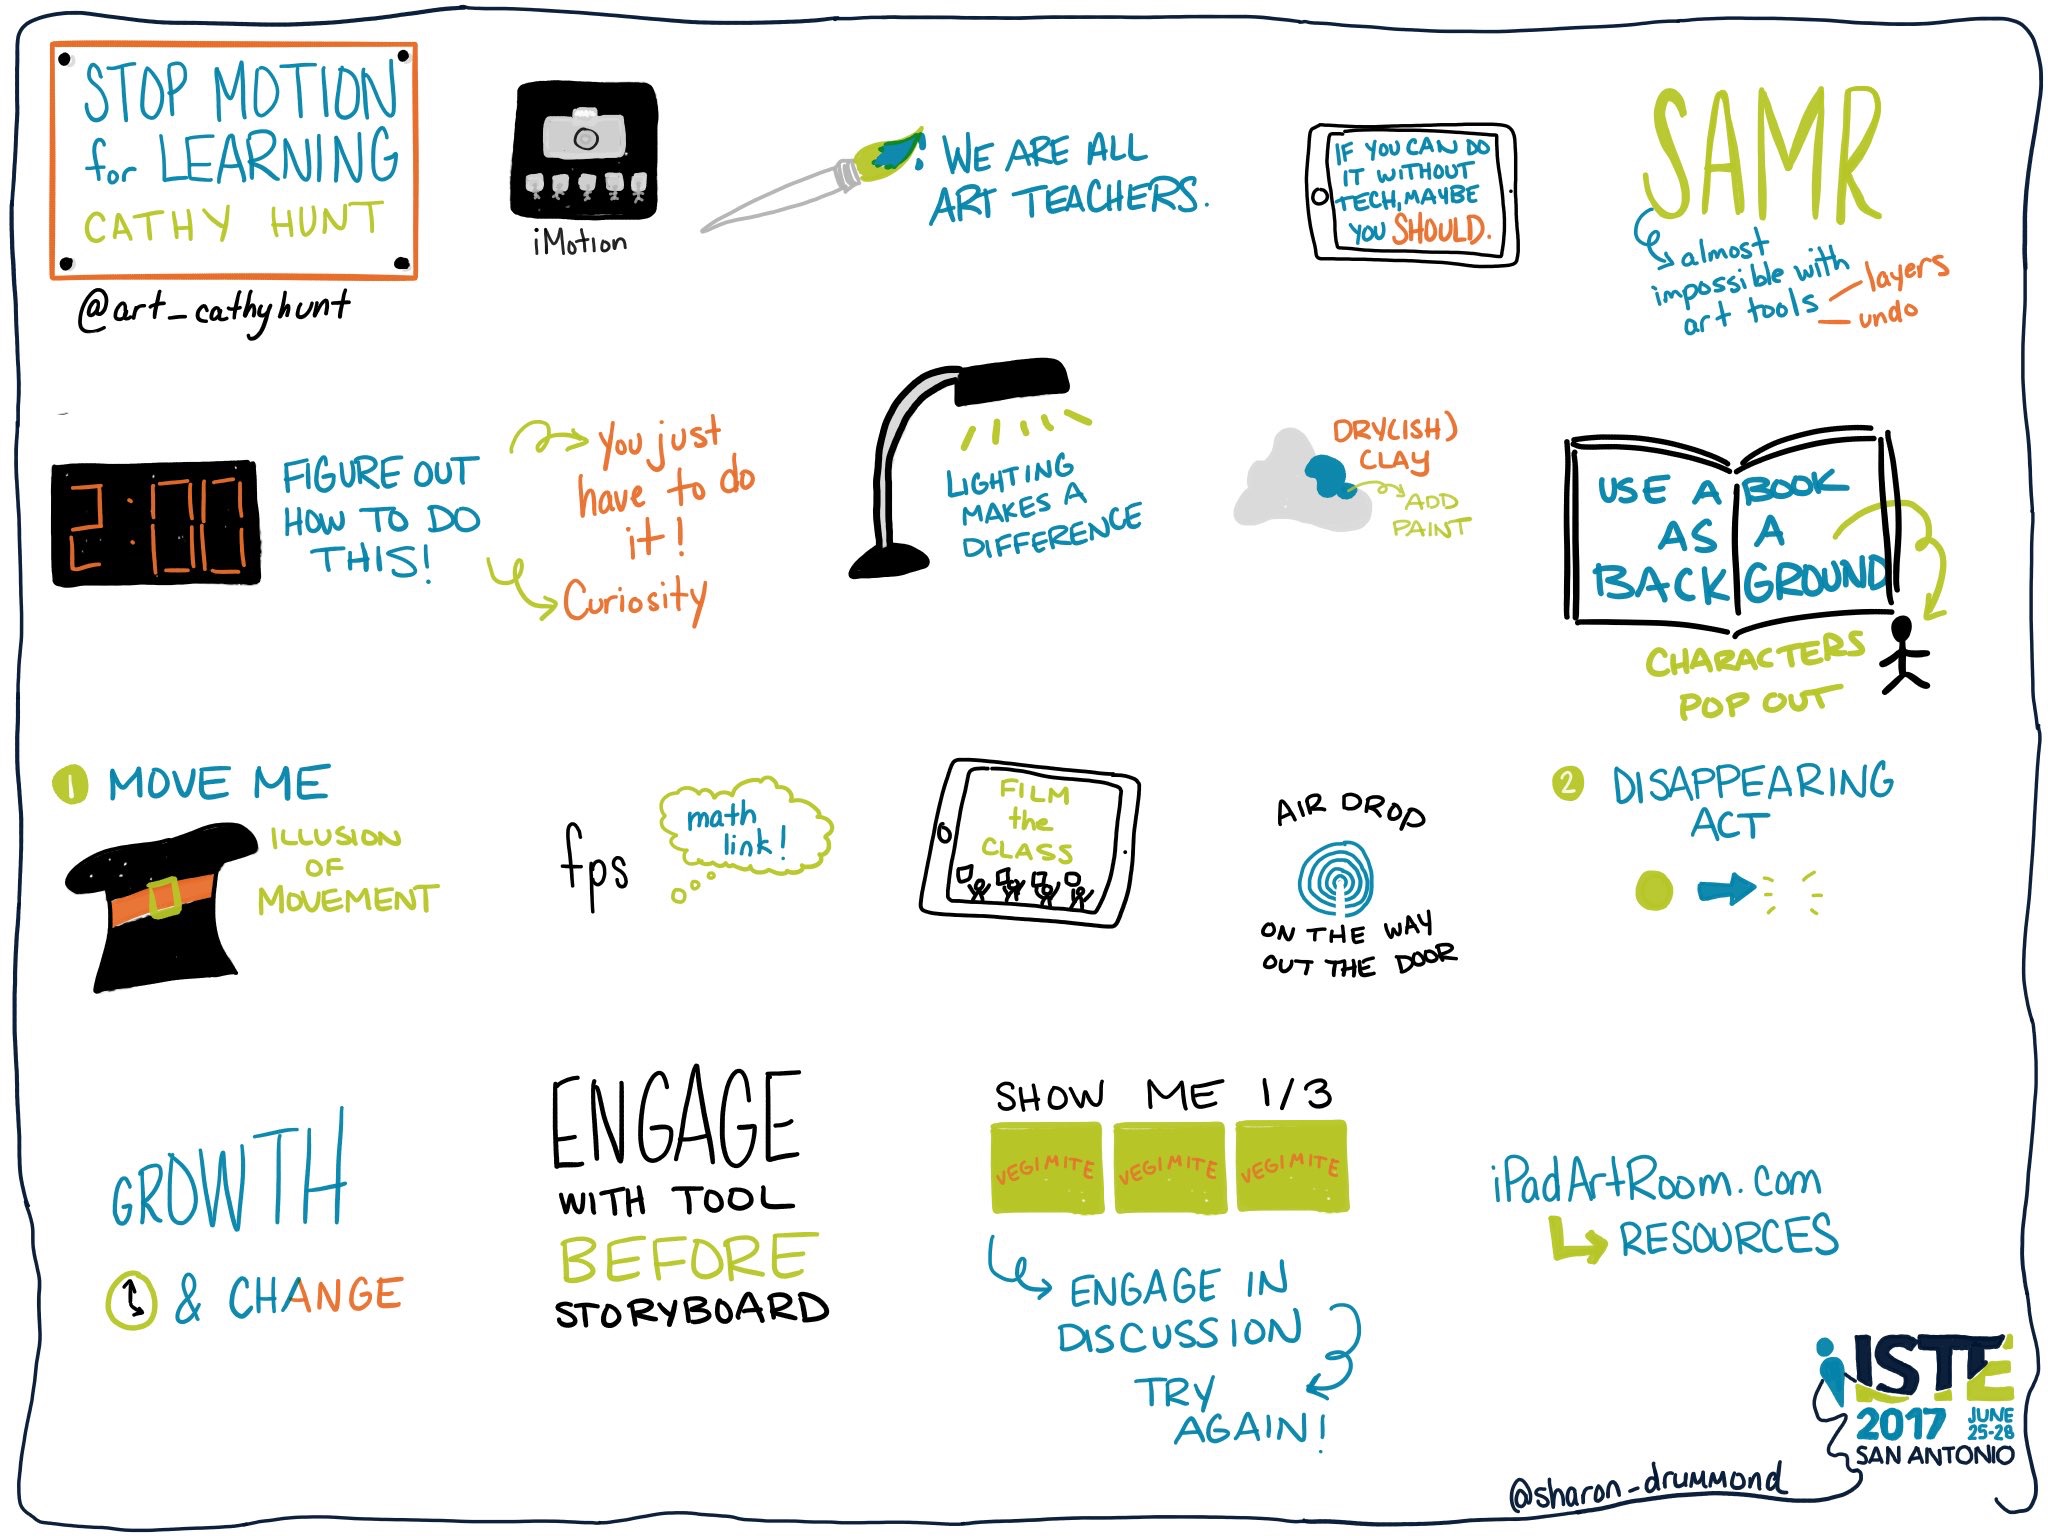 STOP MOTION
for LEARNING
CATHY HUNT
@art_cathyhunt
iMotion
WE ARE ALL
ART TEACHERS.
IF YOU CAN DO
IT WITHOUT
TECH, MAYBE
YOU SHOULD.
SAMR
almost
impossible with
art tools
layers
undo
2:00
FIGURE OUT
HOW TO DO
THIS!
You just
have to do
it!
Curiosity
LIGHTING
MAKES A
DIFFERENCE
DRY(ISH)
CLAY
ADD
PAINT
USE A BOOK
AS A
BACKGROUND
CHARACTERS
POP OUT
1 MOVE ME
ILLUSION
OF
MOVEMENT
fps
math
link!
FILM
the
CLASS
AIR DROP
ON THE WAY
OUT THE DOOR
2 DISAPPEARING
ACT
GROWTH
& CHANGE
ENGAGE
WITH TOOL
BEFORE
STORYBOARD
SHOW ME 1/3
VEGIMITE VEGIMITE VEGIMITE
ENGAGE IN
DISCUSSION
TRY
AGAIN!
iPadArtRoom.com
RESOURCES
ISTE
2017 JUNE
25-28
SAN ANTONIO
@sharon_drummond